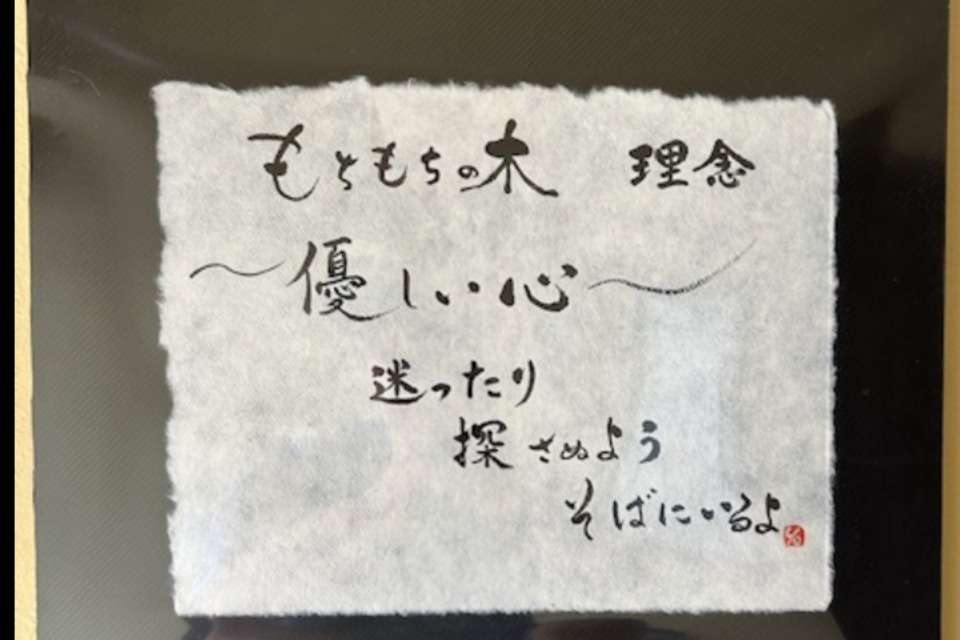 もともちの木 理念
〜優しい心〜
迷ったり
探さぬよう
そばにいるよ